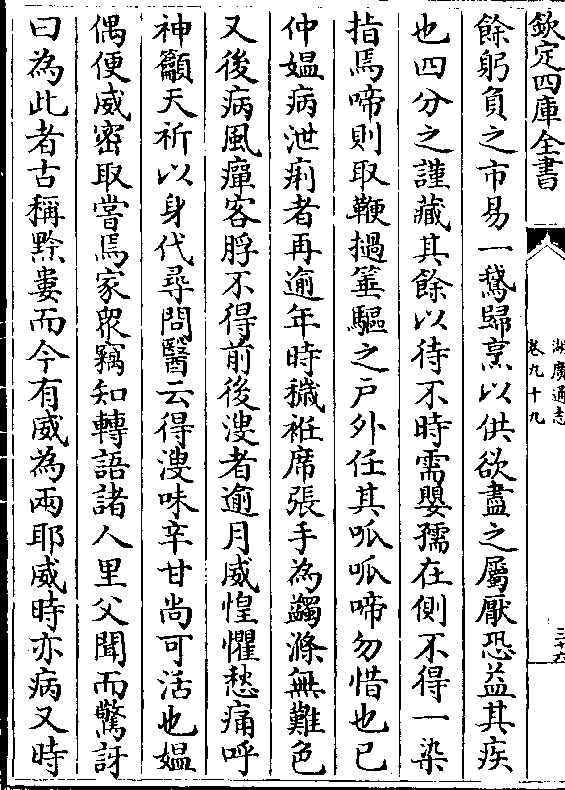 欽定四庫全書
湖廣通志
卷九十九
三十六
餘躬負之市易一鵞歸烹以供欲盡之屬厭恐益其疾
也四分之謹藏其餘以待不時需嬰孺在側不得一染
指焉啼則取鞭撾箠驅之戸外任其呱呱啼勿惜也已
仲媪病泄痢者再逾年時穢袵席張手為蠲滌無難色
又後病風癉客脬不得前後溲者逾月威惶懼愁痛呼
神籲天祈以身代尋問醫云得溲味辛甘尚可活也媪
偶便威密取嘗焉家衆竊知轉語諸人里父聞而驚訝
曰為此者古稱黔婁而今有威為兩耶威時亦病又時